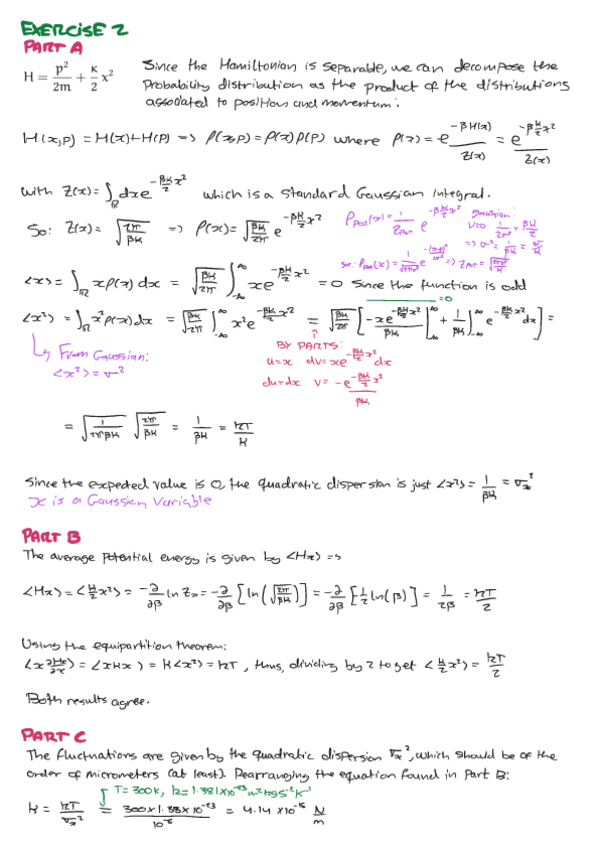 EXERCISE 2
PART A
H = p²/2m + κ/2 x²
Since the Hamiltonian is separable, we can decompose the
probability distribution as the product of the distributions
associated to position and momentum:
H(x,p) = H(x)+H(p) => ρ(x,p)=ρ(x)ρ(p) where ρ(x) = e^{-βH(x)}/Z(x) = e^{-βK/2 x²}/Z(x)
with Z(x)=∫_ℝ dx e^{-βK/2 x²} which is a standard Gaussian Integral.
So: Z(x) = √(2π/βK) => ρ(x)=√(βK/2π) e^{-βK/2 x²}
ρ_pos(x)=1/Z_pot e^{-βK/2 x²} gaussian:
μ=0 1/2σ² = βK/2
=> σ² = 1/βK
<x> = ∫_ℝ xρ(x) dx = √(βK/2π) ∫_{-∞}^{∞} xe^{-βK/2 x²} = 0 Since the function is odd
<x²> = ∫_ℝ x²ρ(x)dx = √(βK/2π) ∫_{-∞}^{∞} x²e^{-βK/2 x²} = √(βK/2π) [-xe^{-βK/2 x²}/βK |_{-∞}^{∞} + 1/βK ∫_{-∞}^{∞} e^{-βK/2 x²} dx] =
=0
From Gaussian:
<x²> = σ²
BY PARTS:
u=x dv=xe^{-βK/2 x²} dx
du=dx v=-e^{-βK/2 x²}/βK
= √(1/2πβK) √(2π/βK) = 1/βK = kT/K
Since the expected value is 0, the quadratic dispersion is just <x²> = 1/βK = σx²
x is a Gaussian Variable
PART B
The average potential energy is given by <Hx> =>
<Hx> = <K/2 x²> = -∂/∂β ln Zx = -∂/∂β [ln(√(2π/βK))] = -∂/∂β [1/2 ln(β)] = 1/2β = kT/2
Using the equipartition theorem:
<x ∂Hx/∂x> = <xKx> = K<x²> = kT, thus, dividing by 2 to get <K/2 x²> = kT/2
Both results agree.
PART C
The fluctuations are given by the quadratic dispersion σx², which should be of the
order of micrometers (at least). Rearranging the equation found in Part B:
T=300K, k=1.381×10⁻²³ m²kgs⁻²K⁻¹
K = kT/σx² = 300×1.38×10⁻²³/10⁻⁶ = 4.14×10⁻¹⁵ N/m